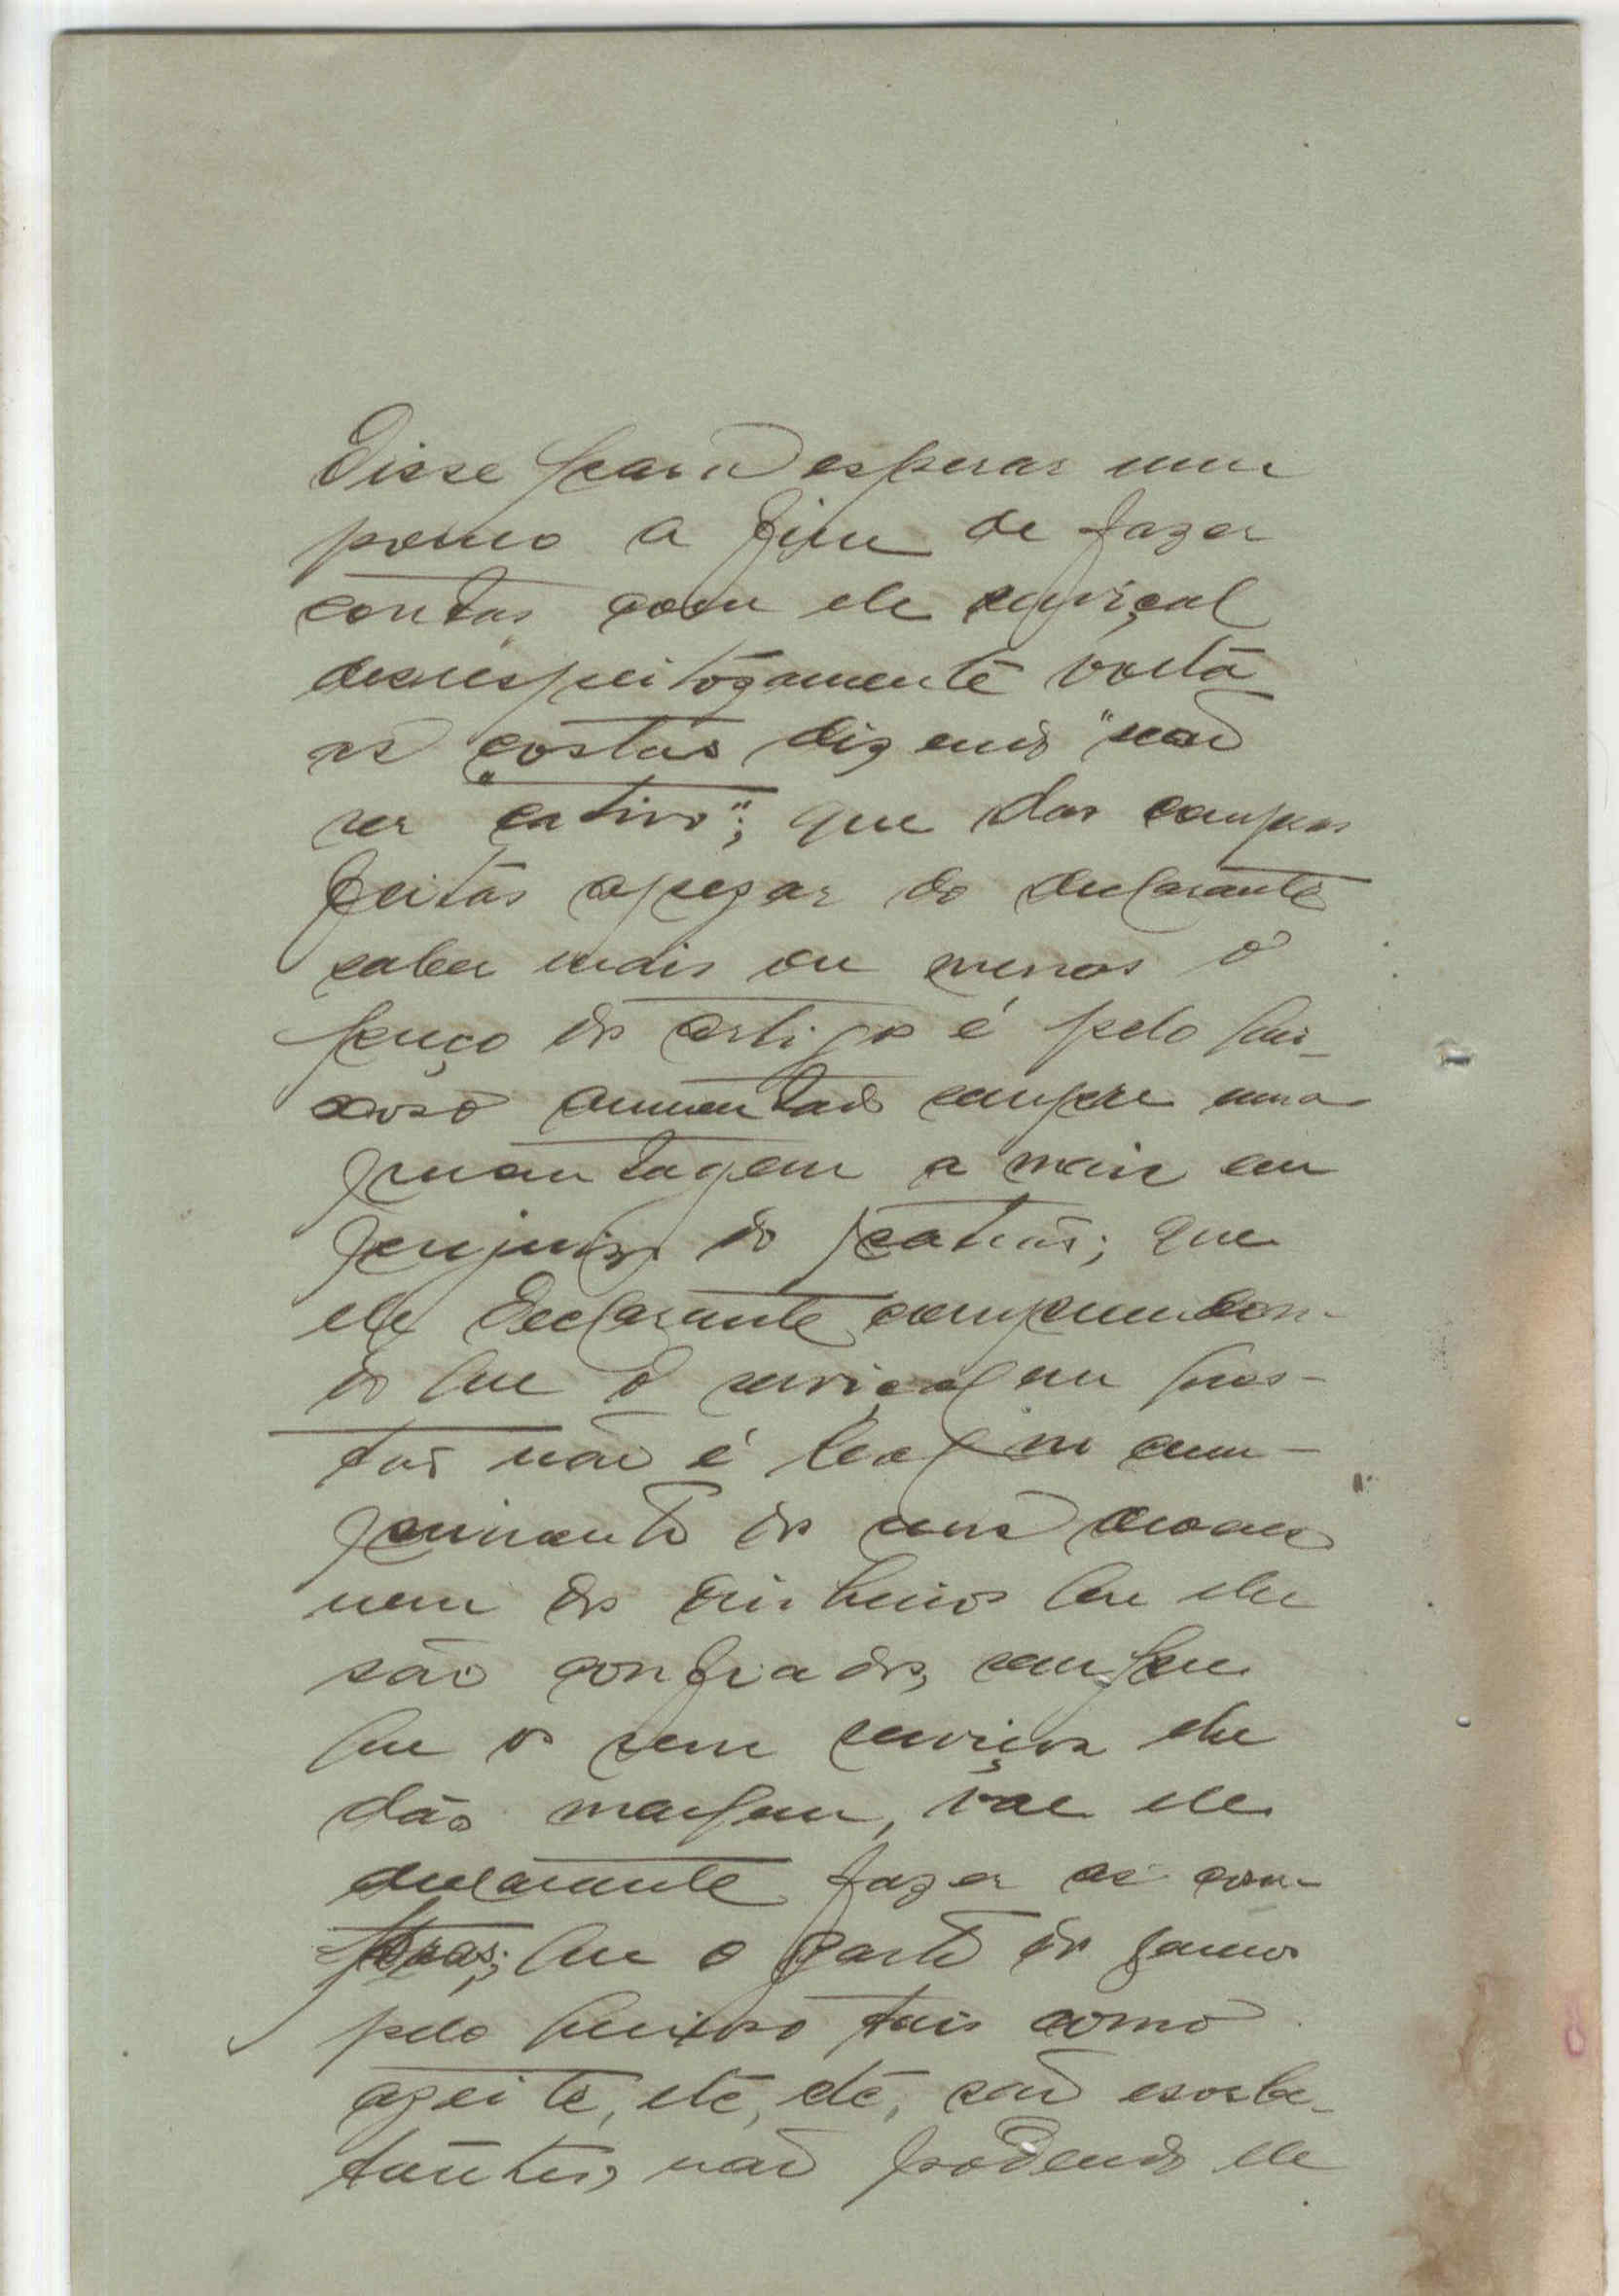 Disse para esperar um
pouco a fim de fazer
contas com ele serviçal
desrespeitozamente volta
as costas dizendo "não
ser "cativo"; que das compras
feitas apezar do declarante
saber mais ou menos o
preço do artigo é pelo quei-
xoso aumentado sempre uma
percentagem a mais em
prejuizo do patrão; que
ele declarante compreenden-
do que o serviçal em
não é leal no cum-
primento de seus deveres
nem dos dinheiros que lhe
são confiados, sempre
que os seus serviços lhe
dão margem, vae ele
declarante fazer as com-
pras; que o gasto de generos
pelo queixoso tais como
azeite, etc, etc, são exorbi-
tantes, não podendo ele